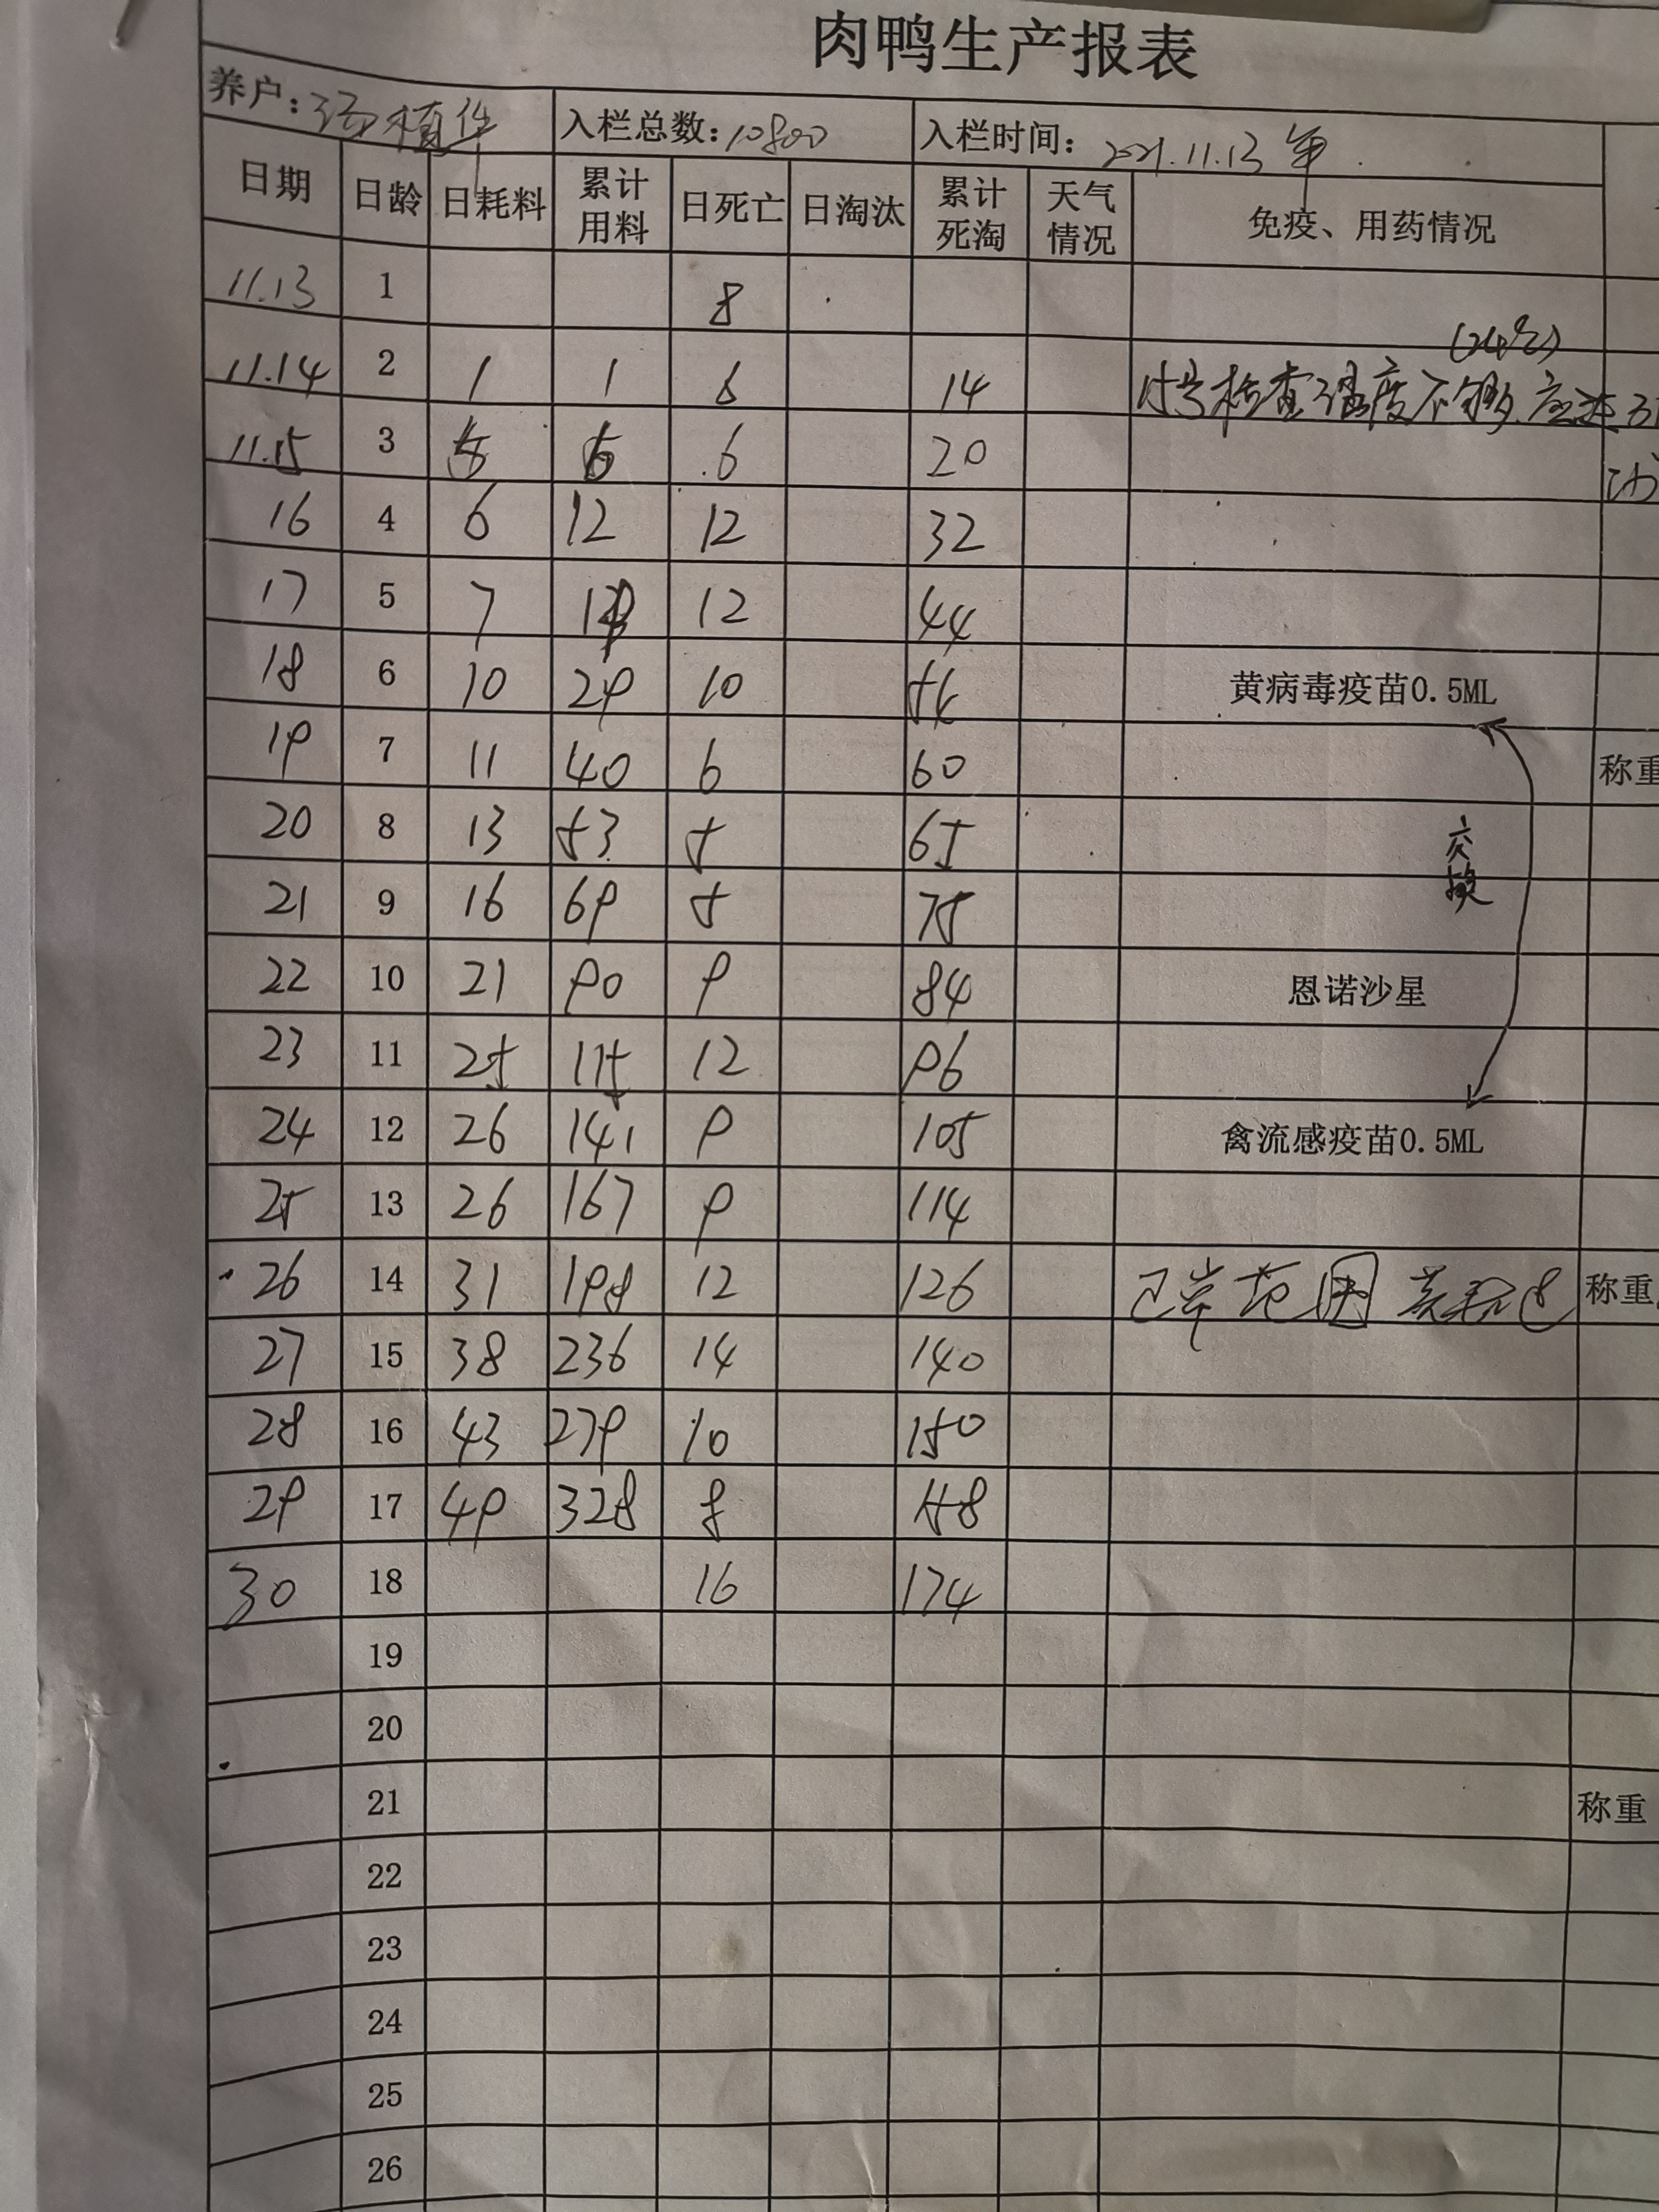 肉鸭生产报表
养户：汤植华 入栏总数：10800 入栏时间：2021.11.13 年
日期 日龄 日耗料 累计用料 日死亡 日淘汰 累计死淘 天气情况 免疫、用药情况
11.13 1 8
11.14 2 1 1 6 14 15号检查温度不够.应达 (24℃)
11.15 3 5 6 6 20
16 4 6 12 12 32
17 5 7 19 12 44
18 6 10 29 10 54 黄病毒疫苗0.5ML
19 7 11 40 6 60 称重
20 8 13 53 5 65 交换
21 9 16 69 5 75
22 10 21 90 9 84 恩诺沙星
23 11 25 115 12 96
24 12 26 141 9 105 禽流感疫苗0.5ML
25 13 26 167 9 114
26 14 31 198 12 126 称重
27 15 38 236 14 140
28 16 43 279 10 150
29 17 49 328 8 158
30 18 16 174
19
20
21 称重
22
23
24
25
26